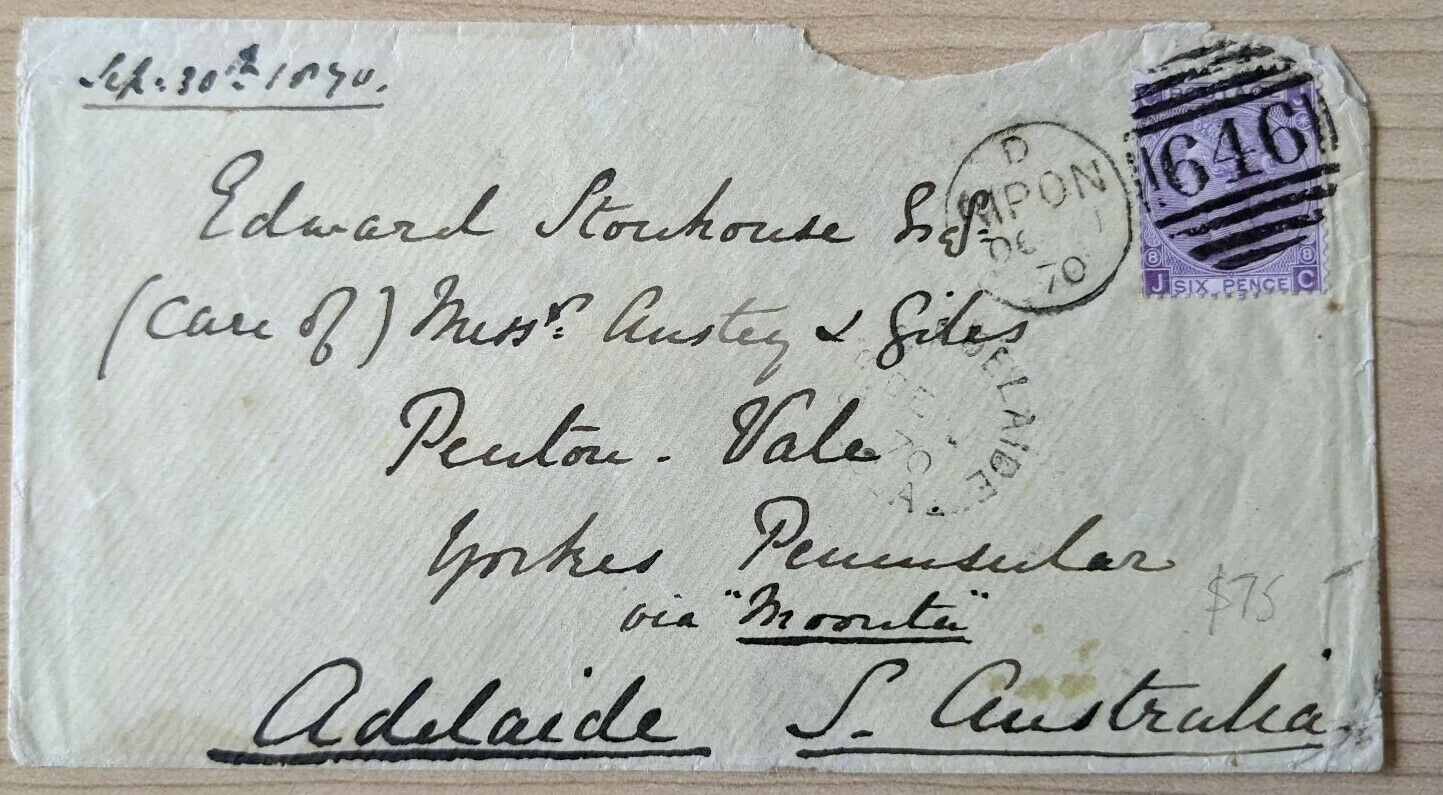 Sep: 30th 1870.
POSTAGE
646
D
RIPON
OC 1
70
J SIX PENCE C
Edward Stonhouse Esq.
(Care of) Messrs. Anstey & Giles
ADELAIDE
DE
70
Penton. Vale
Yorkes Peninsular
via "Moonta"
$75
Adelaide S. Australia